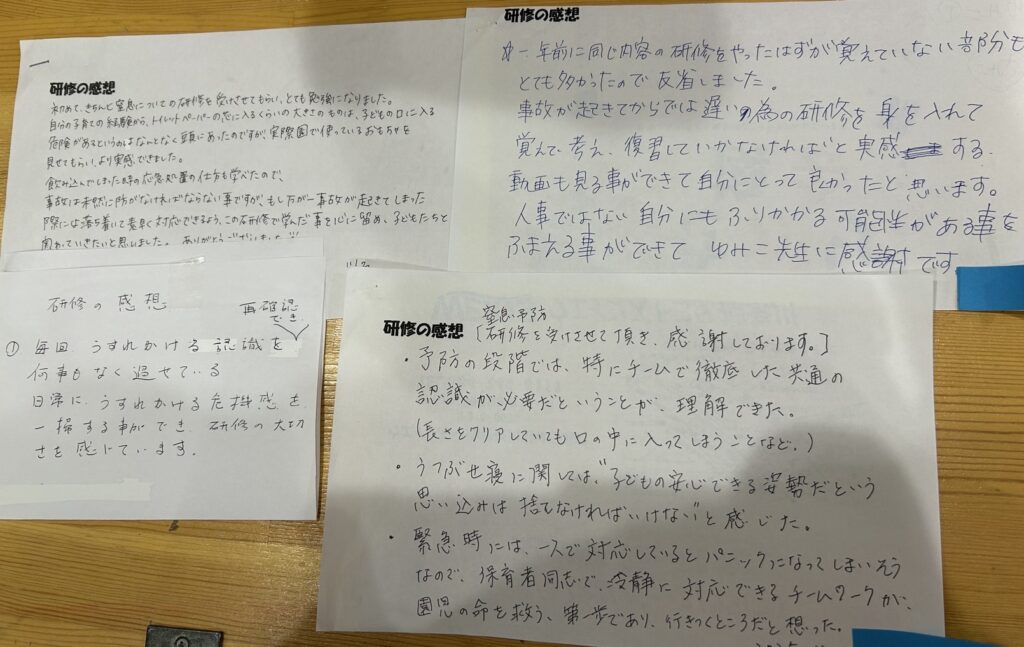 研修の感想
初めて、きちんと窒息についての研修を受けさせてもらい、とても勉強になりました。
自分の子育ての経験から、トイレットペーパーの芯に入るくらいの大きさのものは、子どもの口に入る
危険があるというのはなんとなく頭にあったのですが、実際園で使っているおもちゃを
見せてもらい、より実感できました。
飲み込んでしまった時の応急処置の仕方も学べたので、
事故は未然に防がなければならない事ですが、もし万が一事故が起きてしまった
際には落ち着いて素早く対応できるよう、この研修で学んだ事を心に留め、子どもたちと
関わっていきたいと思いました。ありがとうございました
研修の感想
一年前に同じ内容の研修をやったはずが覚えていない部分も
とても多かったので反省しました。
事故が起きてからでは遅い の為の研修を身を入れて
覚えて、考え、復習していかなければと実感 する。
動画も見る事ができて自分にとって良かったと思います。
人事ではない自分にもふりかかる可能性がある事を
ふまえる事ができて ゆみこ先生に感謝です
研修の感想
再確認
でき
① 毎回、うすれかける認識を
何事もなく過せている
日常に、うすれかける危機感を
一掃する事ができ、研修の大切
さを感じています。
研修の感想
窒息予防
[研修を受けさせて頂き、感謝しております。]
・予防の段階では、特にチームで徹底した共通の
認識が必要だということが、理解できた。
(長さをクリアしていても口の中に入ってしまうことなど。)
・うつぶせ寝に関しては、“子どもの安心できる姿勢だという
思い込みは捨てなければいけない”と感じた。
・緊急時には、一人で対応しているとパニックになってしまいそう
なので、保育者同志で、冷静に対応できるチームワークが、
園児の命を救う、第一歩であり、行きつくところだと想った。